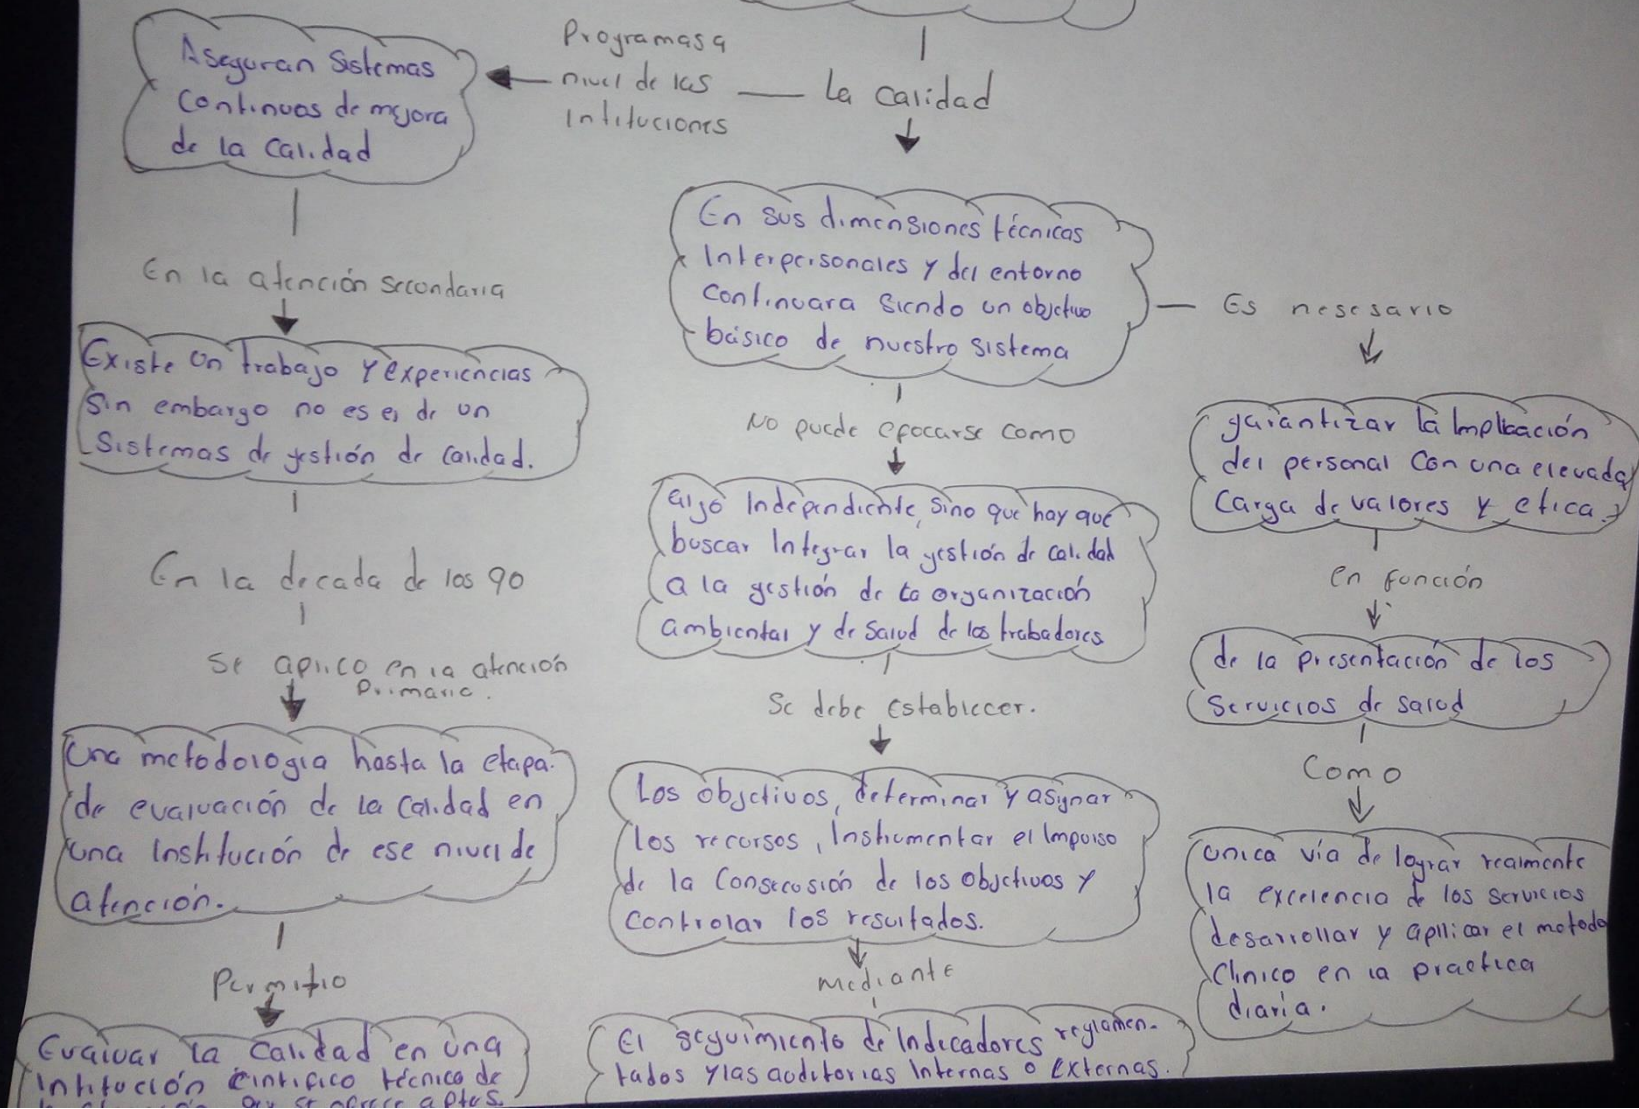 La calidad
Programas a
nivel de las
Intituciones
Aseguran Sistemas
Continuos de mejora
de la Calidad
En la atención secundaria
Existe un trabajo y experiencias
Sin embargo no es el de un
Sistemas de gestión de calidad.
En la decada de los 90
Se aplico en la atención
Primaria.
Una metodologia hasta la etapa
de evaluación de la Calidad en
una Institución de ese nivel de
atención.
Permitio
Evaluar la Calidad en una
Intitución Cintifico técnica de
En sus dimensiones técnicas
Interpersonales y del entorno
Continuara Siendo un objetivo
básico de nuestro Sistema
No puede efocarse como
algo Independiente, Sino que hay que
buscar Integrar la gestión de calidad
a la gestión de la organización
ambiental y de Salud de los trabadores
Se debe Establecer.
Los objetivos, determinar y asignar
los recursos, Instrumentar el Impulso
de la Consecusión de los objetivos y
Controlar los resultados.
mediante
El Seguimiento de Indicadores reglamen-
tados y las auditorias Internas o Externas.
Es nesesario
garantizar la Implicación
del personal Con una elevada
Carga de valores y etica.
en función
de la presentación de los
Servicios de salud
Como
Unica vía de lograr realmente
la excelencia de los servicios
desarrollar y apllicar el metodo
Clinico en la practica
diaria.